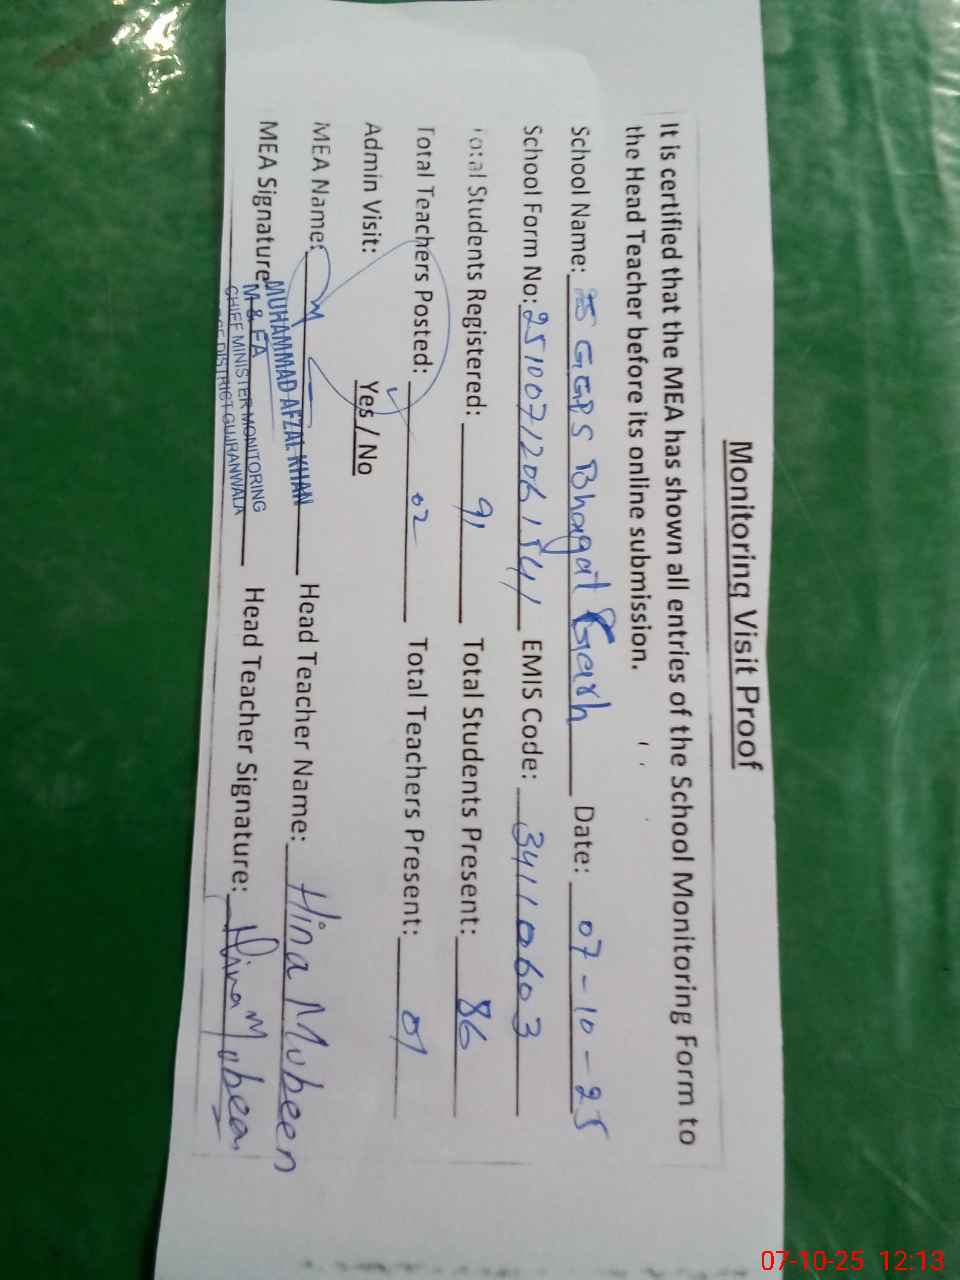 Monitoring Visit Proof
It is certified that the MEA has shown all entries of the School Monitoring Form to
the Head Teacher before its online submission.
School Name: GGPS Bhagat Garh Date: 07-10-25
School Form No: 2510071206154/ EMIS Code: 34110603
Total Students Registered: 91 Total Students Present: 86
Total Teachers Posted: 02 Total Teachers Present: 01
Admin Visit: Yes / No
MEA Name: Head Teacher Name: Hina Mubeen
MEA Signature: Head Teacher Signature: Hina Mubeen
MUHAMMAD AFZAL KHAN
M & EA
CHIEF MINISTER MONITORING
DISTRICT GUJRANWALA
07-10-25 12:13